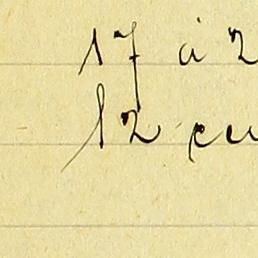 17 à 2
12 cu